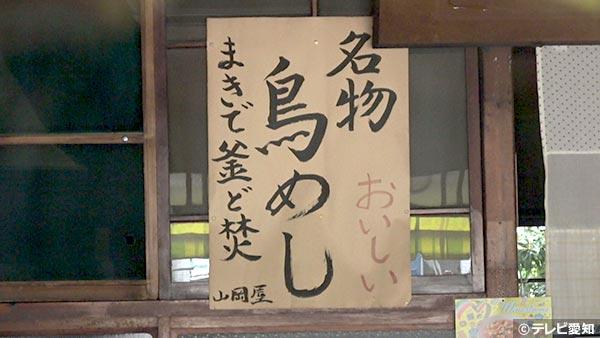 名物
おいしい
鳥めし
まきいで釜ど焚
山岡屋
©テレビ愛知